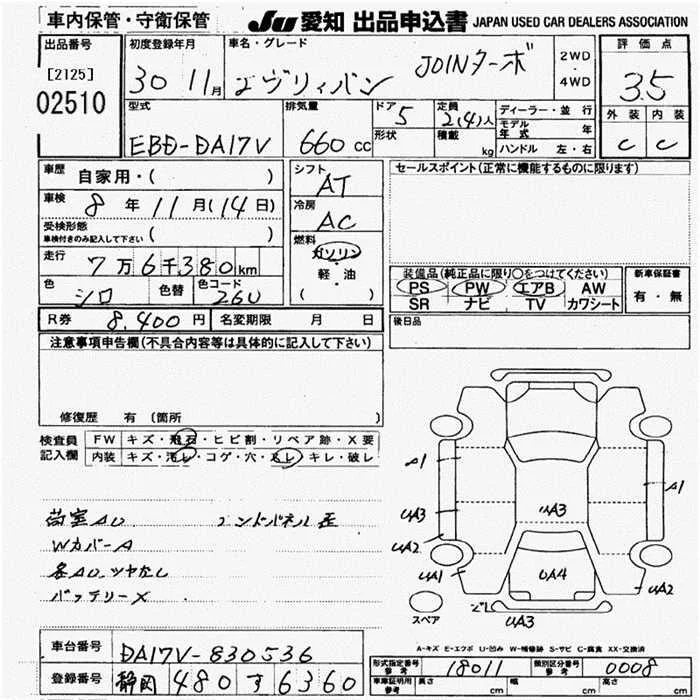 車内保管・守衛保管
JU 愛知 出品申込書 JAPAN USED CAR DEALERS ASSOCIATION
出品番号
[2125]
02510
初度登録年月
30 11月
車名・グレード
エヴリィバン JOINターボ
2WD
4WD
評価点
3.5
外装 内装
C C
型式
EBD-DA17V
排気量
660 cc
ドア 5
形状
定員 2(4)人
積載 kg
ディーラー・並行
モデル年式 年
ハンドル 左・右
車歴 自家用・( )
車検 8年11月(14日)
受検形態
車検付きのみ記入して下さい ( )
走行 7万6千380km
色 シロ 色替 色コード 26U
シフト AT
冷房 AC
燃料 ガソリン
軽・油
( )
セールスポイント(正常に機能するものに限ります)
装備品(純正品に限り○をつけてください)
PS PW エアB AW
SR ナビ TV カワシート
新車保証書
有・無
R券 8,400円 名変期限 月 日
後日品
注意事項申告欄(不具合内容等は具体的に記入して下さい)
修復歴 有 〔箇所 〕
検査員記入欄
FW キズ・飛石・ヒビ割・リペア跡・X要
内装 キズ・汚レ・コゲ・穴・スレ・キレ・破レ
荷室AU エンドパネル歪
Wカバ-A
各AU.ツヤなし
バッテリーX
A1
UA3
UA2
UA1
UA3
A1
UA4
UA2
UA3
スペア
A-キズ E-エクボ U-凹み W-補修跡 S-サビ C-腐食 XX-交換済
車台番号 DA17V-830536
登録番号 静岡 480 す 6360
形式指定番号 参考 18011 類別区分番号 参考 0008
車庫証明用 参考 長さ cm 幅 cm 高さ cm